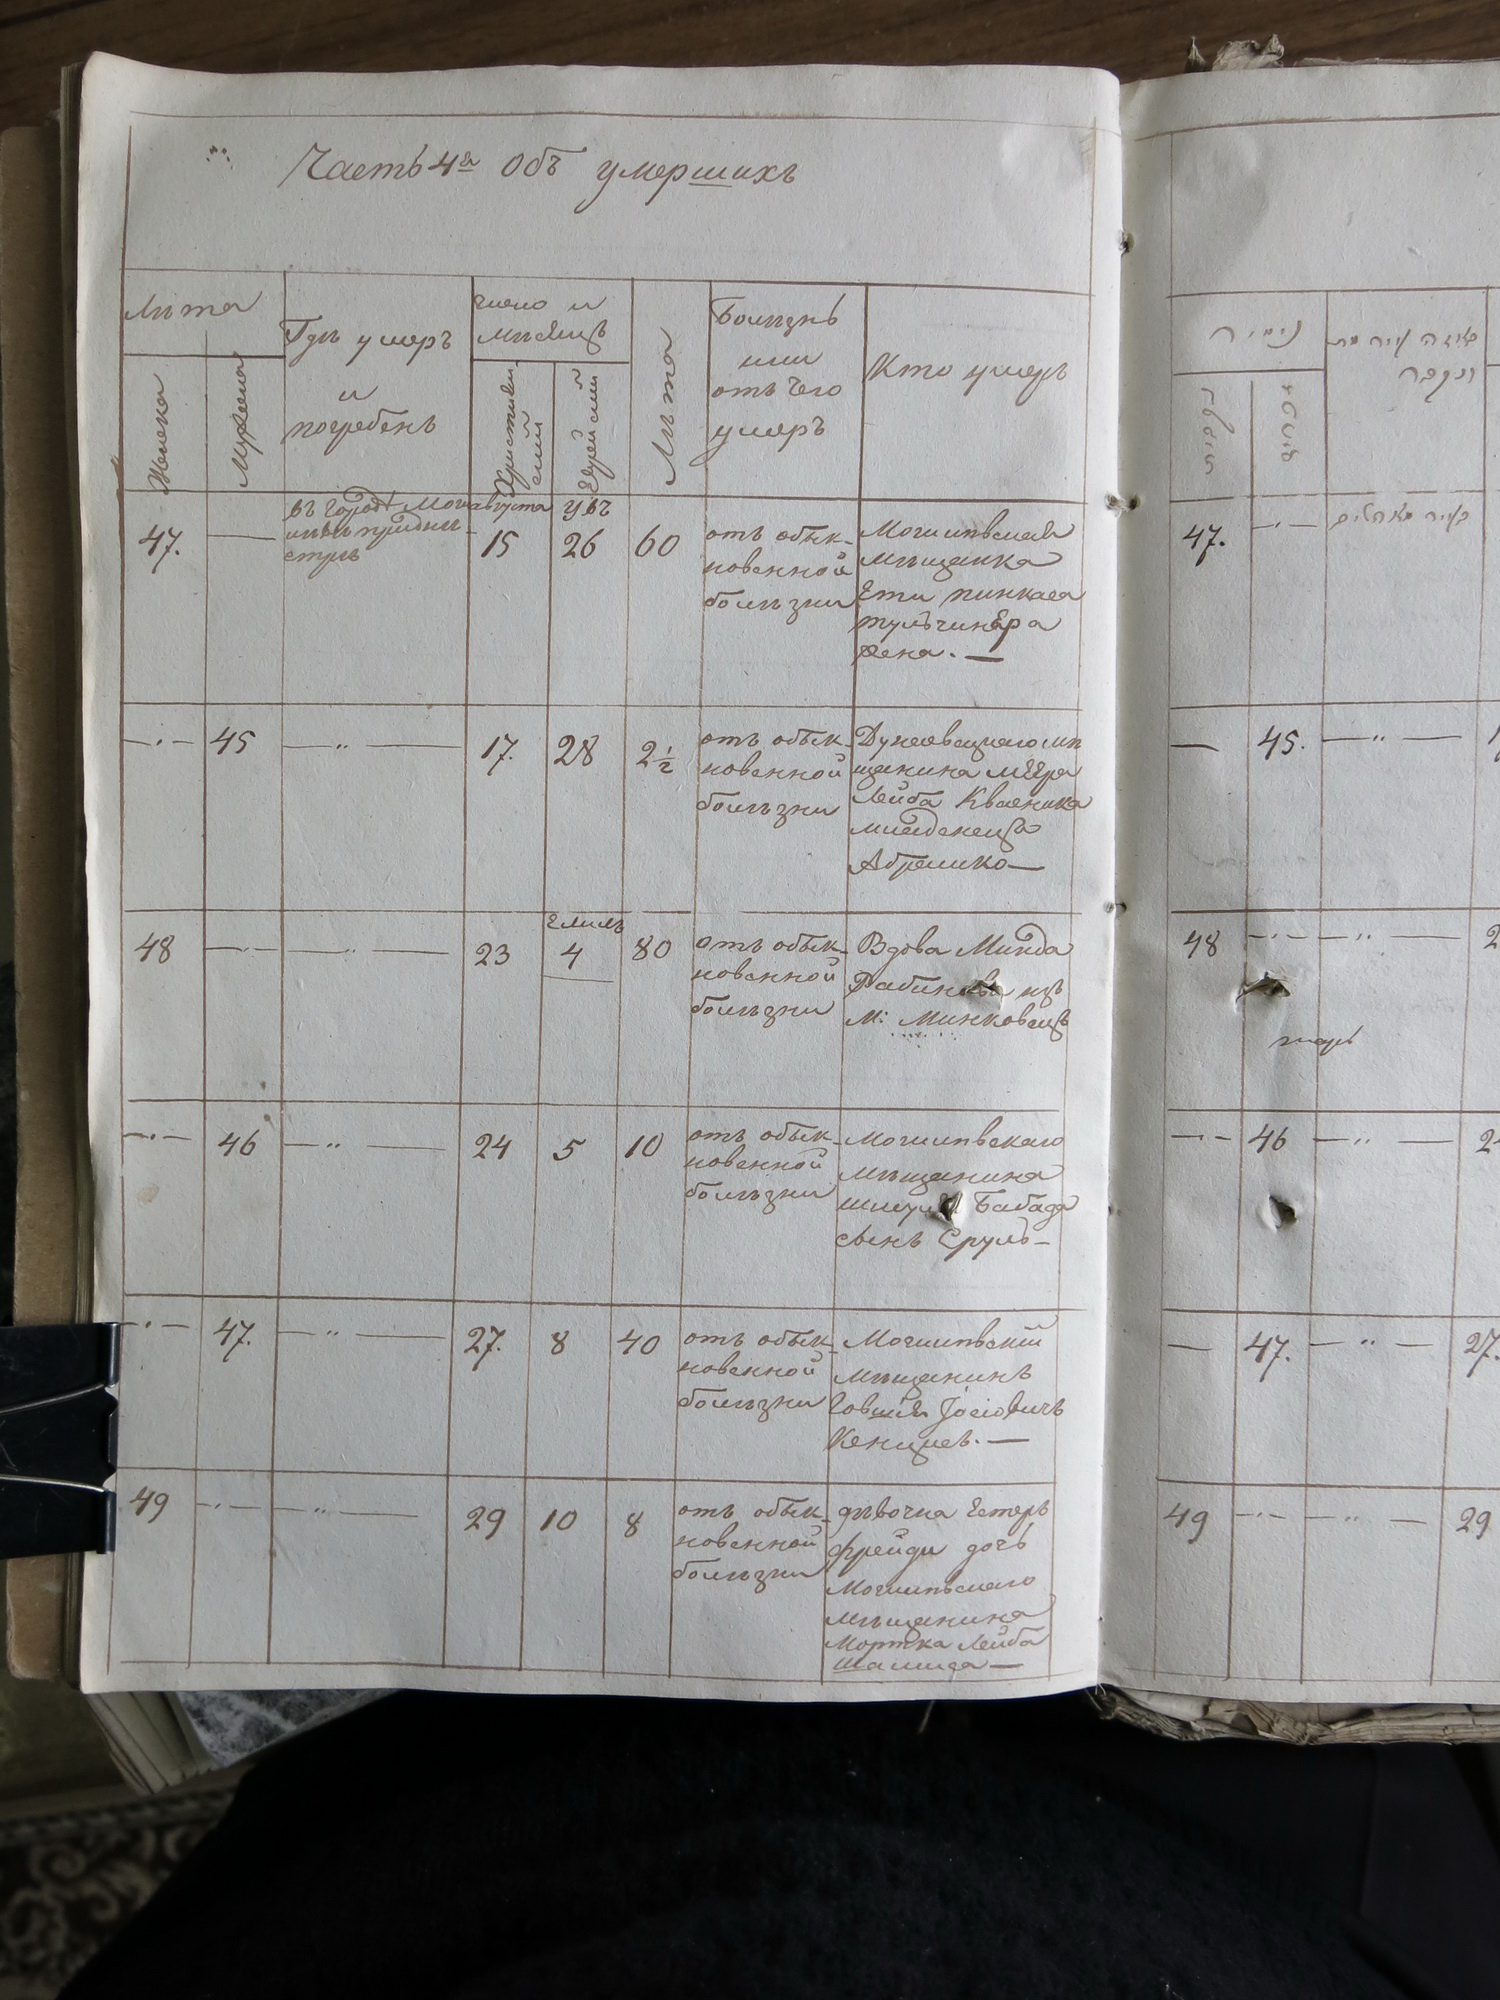 Часть 4я объ умершихъ
Лѣта
Женска
Мужеска
Гдѣ умеръ
и
погребенъ
число и
мѣсяцъ
Христиан
ский
Еврейский
Лѣта
Болѣзнь
или
отъ чего
умеръ
Кто умеръ
47.
въ городѣ Моги
августа
15
26
60
отъ обык-
новенной
болѣзни
Могилевская
мѣщанка
Ети Пинкаса
Тульчинера
жена. —
— · — 45 — " —
17.
28
2 1/2
отъ обык-
новенной
болѣзни
Дунаевецкаго мѣ
щанина Меера
Лейба Квасника
младенецъ
Абрамко —
48 — · — — " —
23
4
80
отъ обык-
новенной
болѣзни
Вдова Минда
изъ
М: Минковецъ
— · — 46 — " —
24
5
10
отъ обык-
новенной
болѣзни
Могилевскаго
мѣщанина
сынъ Сруль —
— · — 47. — " —
27.
8
40
отъ обык-
новенной
болѣзни
Могилевский
мѣщанинъ
49 — · — — " —
29
10
8
отъ обык-
новенной
болѣзни
дѣвочка Естеръ
Фрейди дочь
Могилевскаго
мѣщанина
Мортка Лейба
47. — " —
— 45. — " —
48 — · — " —
— · — 46 — " —
— 47. — " — 27.
49 — · — — " — 29